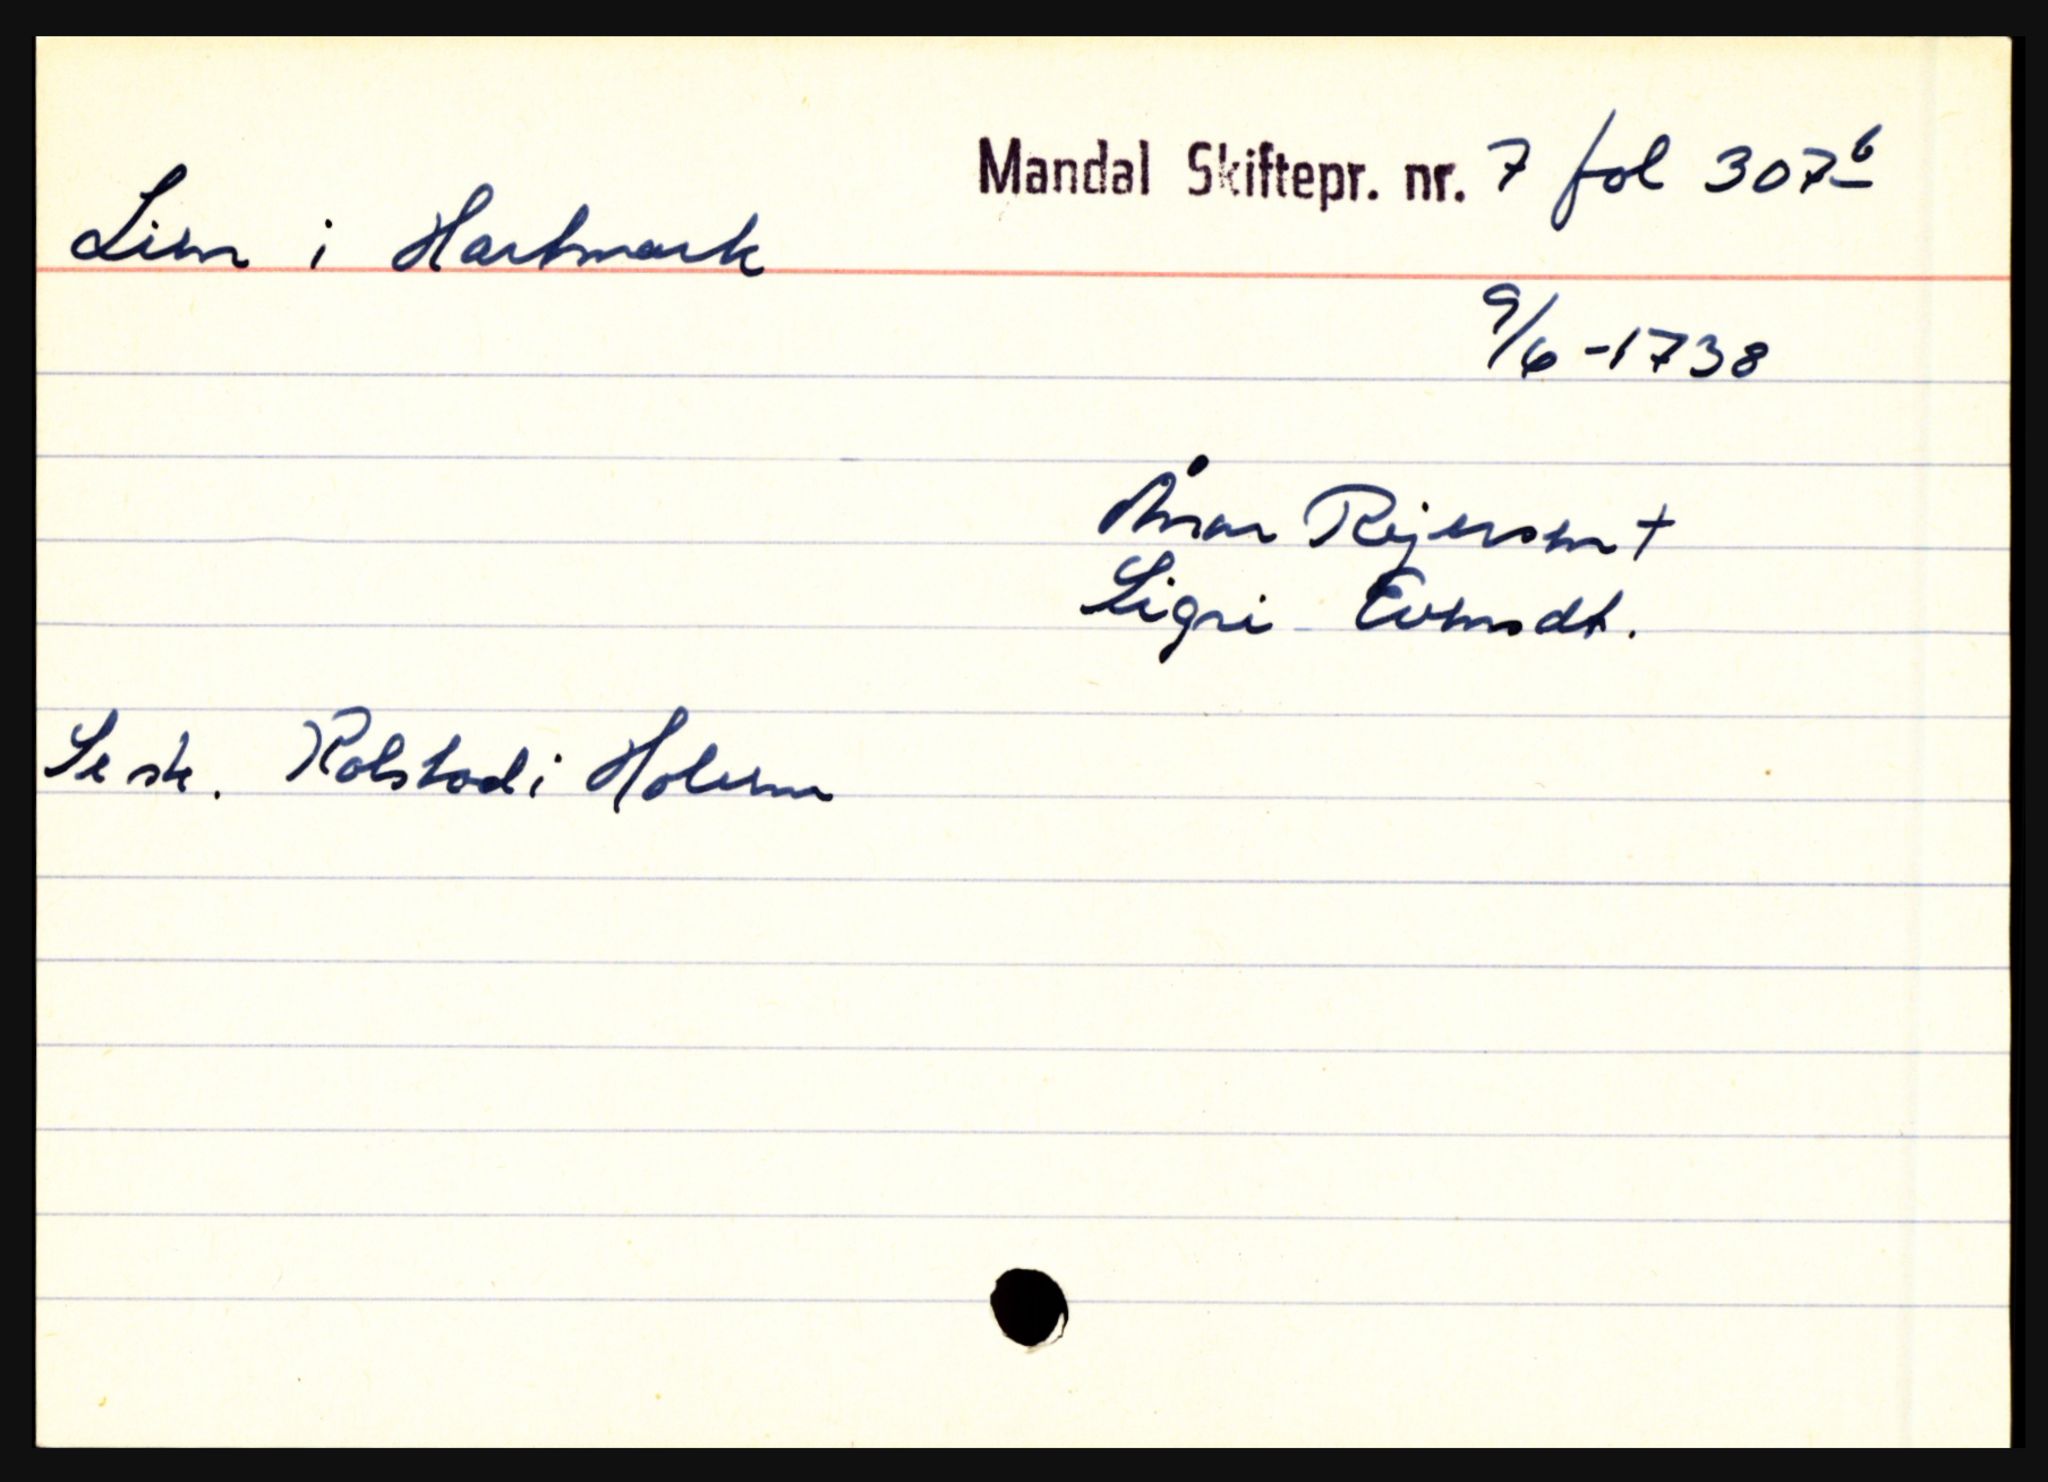 Mandal Skiftepr. nr. 7 fol 307b
Lien i Hartmark
9/6-1738
Ånar Rejersen +
Sigri Evensdt.
Se sk. Rolstad i Holum